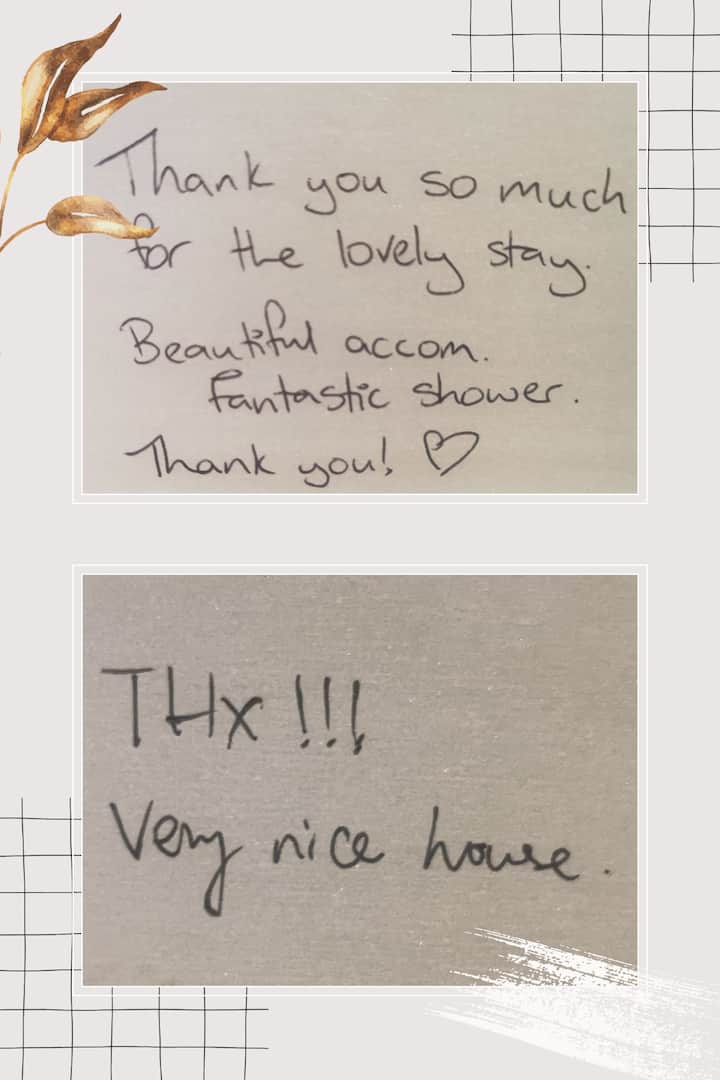 Thank you so much
for the lovely stay.
Beautiful accom.
Fantastic shower.
Thank you! ♡
THx !!!
Very nice house.